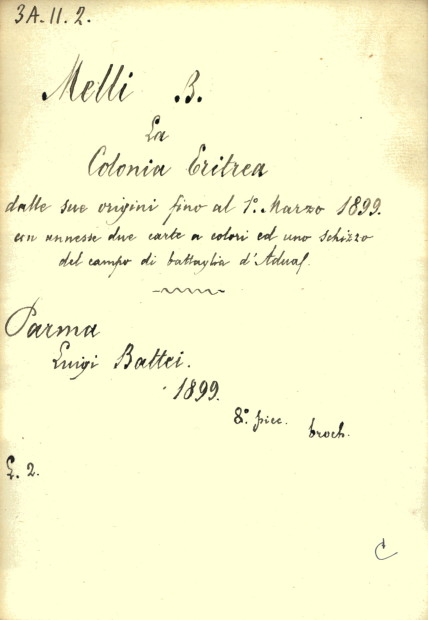 3A.11.2.
Melli B.
La
Colonia Eritrea
dalle sue origini fino al 1º Marzo 1899.
con annesse due carte a colori ed uno schizzo
del campo di battaglia d'Adua.
Parma
Luigi Battei.
1899.
8º. picc. broch.
£. 2.
C